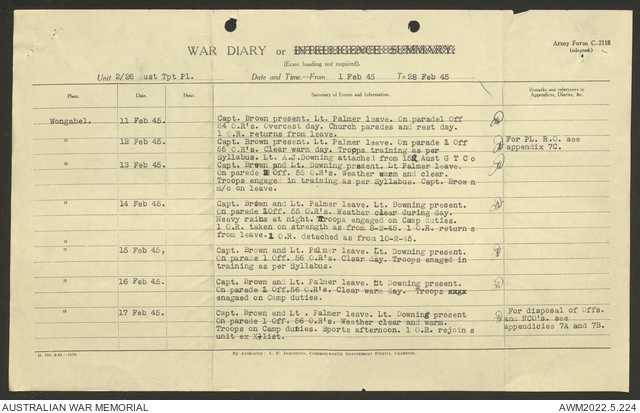 WAR DIARY or INTELLIGENCE SUMMARY.
Army Form C. 2118
(adapted.)
(Erase heading not required).
Unit 2/26 Aust Tpt Pl.
Date and Time.—From 1 Feb 45 To 28 Feb 45
Place.
Date.
Hour.
Summary of Events and Information.
Remarks and references to
Appendices, Diaries, &c.
Wongabel.
11 Feb 45.
Capt. Brown present. Lt. Palmer leave. On parade1 Off
54 O.R's. Overcast day. Church parades and rest day.
1 O.R. returns from leave.
"
12 Feb 45.
Capt. Brown present. Lt. Palmer leave. On parade 1 Off
55 O.R's. Clear warm day. Troops training as per
Syllabus. Lt. A.J.Downing attached from Aust G T C o
For PL. R.O. see
appendix 7C.
"
13 Feb 45.
Capt. Brown and Lt. Downing present. Lt Palmer leave.
On parade 2 Off. 55 O.R's. Weather warm and clear.
Troops engaged in training as per Syllabus. Capt. Brown
m/o on leave.
"
14 Feb 45.
Capt. Brown and Lt. Palmer leave. Lt. Downing present.
On parade 1Off. 55 O.R's. Weather clear during day.
Heavy rains at night. Troops engaged on Camp duties.
1 O.R. taken on strength as from 8-2-45. 1 O.R. returns
from leave. 1 O.R. detached as from 10-2-45.
"
"
15 Feb 45,
Capt. Brown and Lt. Palmer leave. Lt. Downing present.
On parade 1 Off. 56 O.R's. Clear day. Troops enaged in
training as per Syllabus.
"
16 Feb 45.
Capt. Brown and Lt. Palmer leave. Lt Downing present.
On parade 1 Off. 56 O.R's. Clear warm day. Troops
enagaed on Camp duties.
"
17 Feb 45.
Capt. Brown and Lt . Palmer leave. Lt. Downing present
On parade 1 Off. 56 O.R's. Weather clear and warm.
Troops on Camp duties. Sports afternoon. 1 O.R. rejoins
unit ex X list.
For disposal of Offs.
and NCO's. see
appendicies 7A and 7B.
By Authority: L. F. Johnston, Commonwealth Government Printer, Canberra.
AUSTRALIAN WAR MEMORIAL
AWM2022.5.224